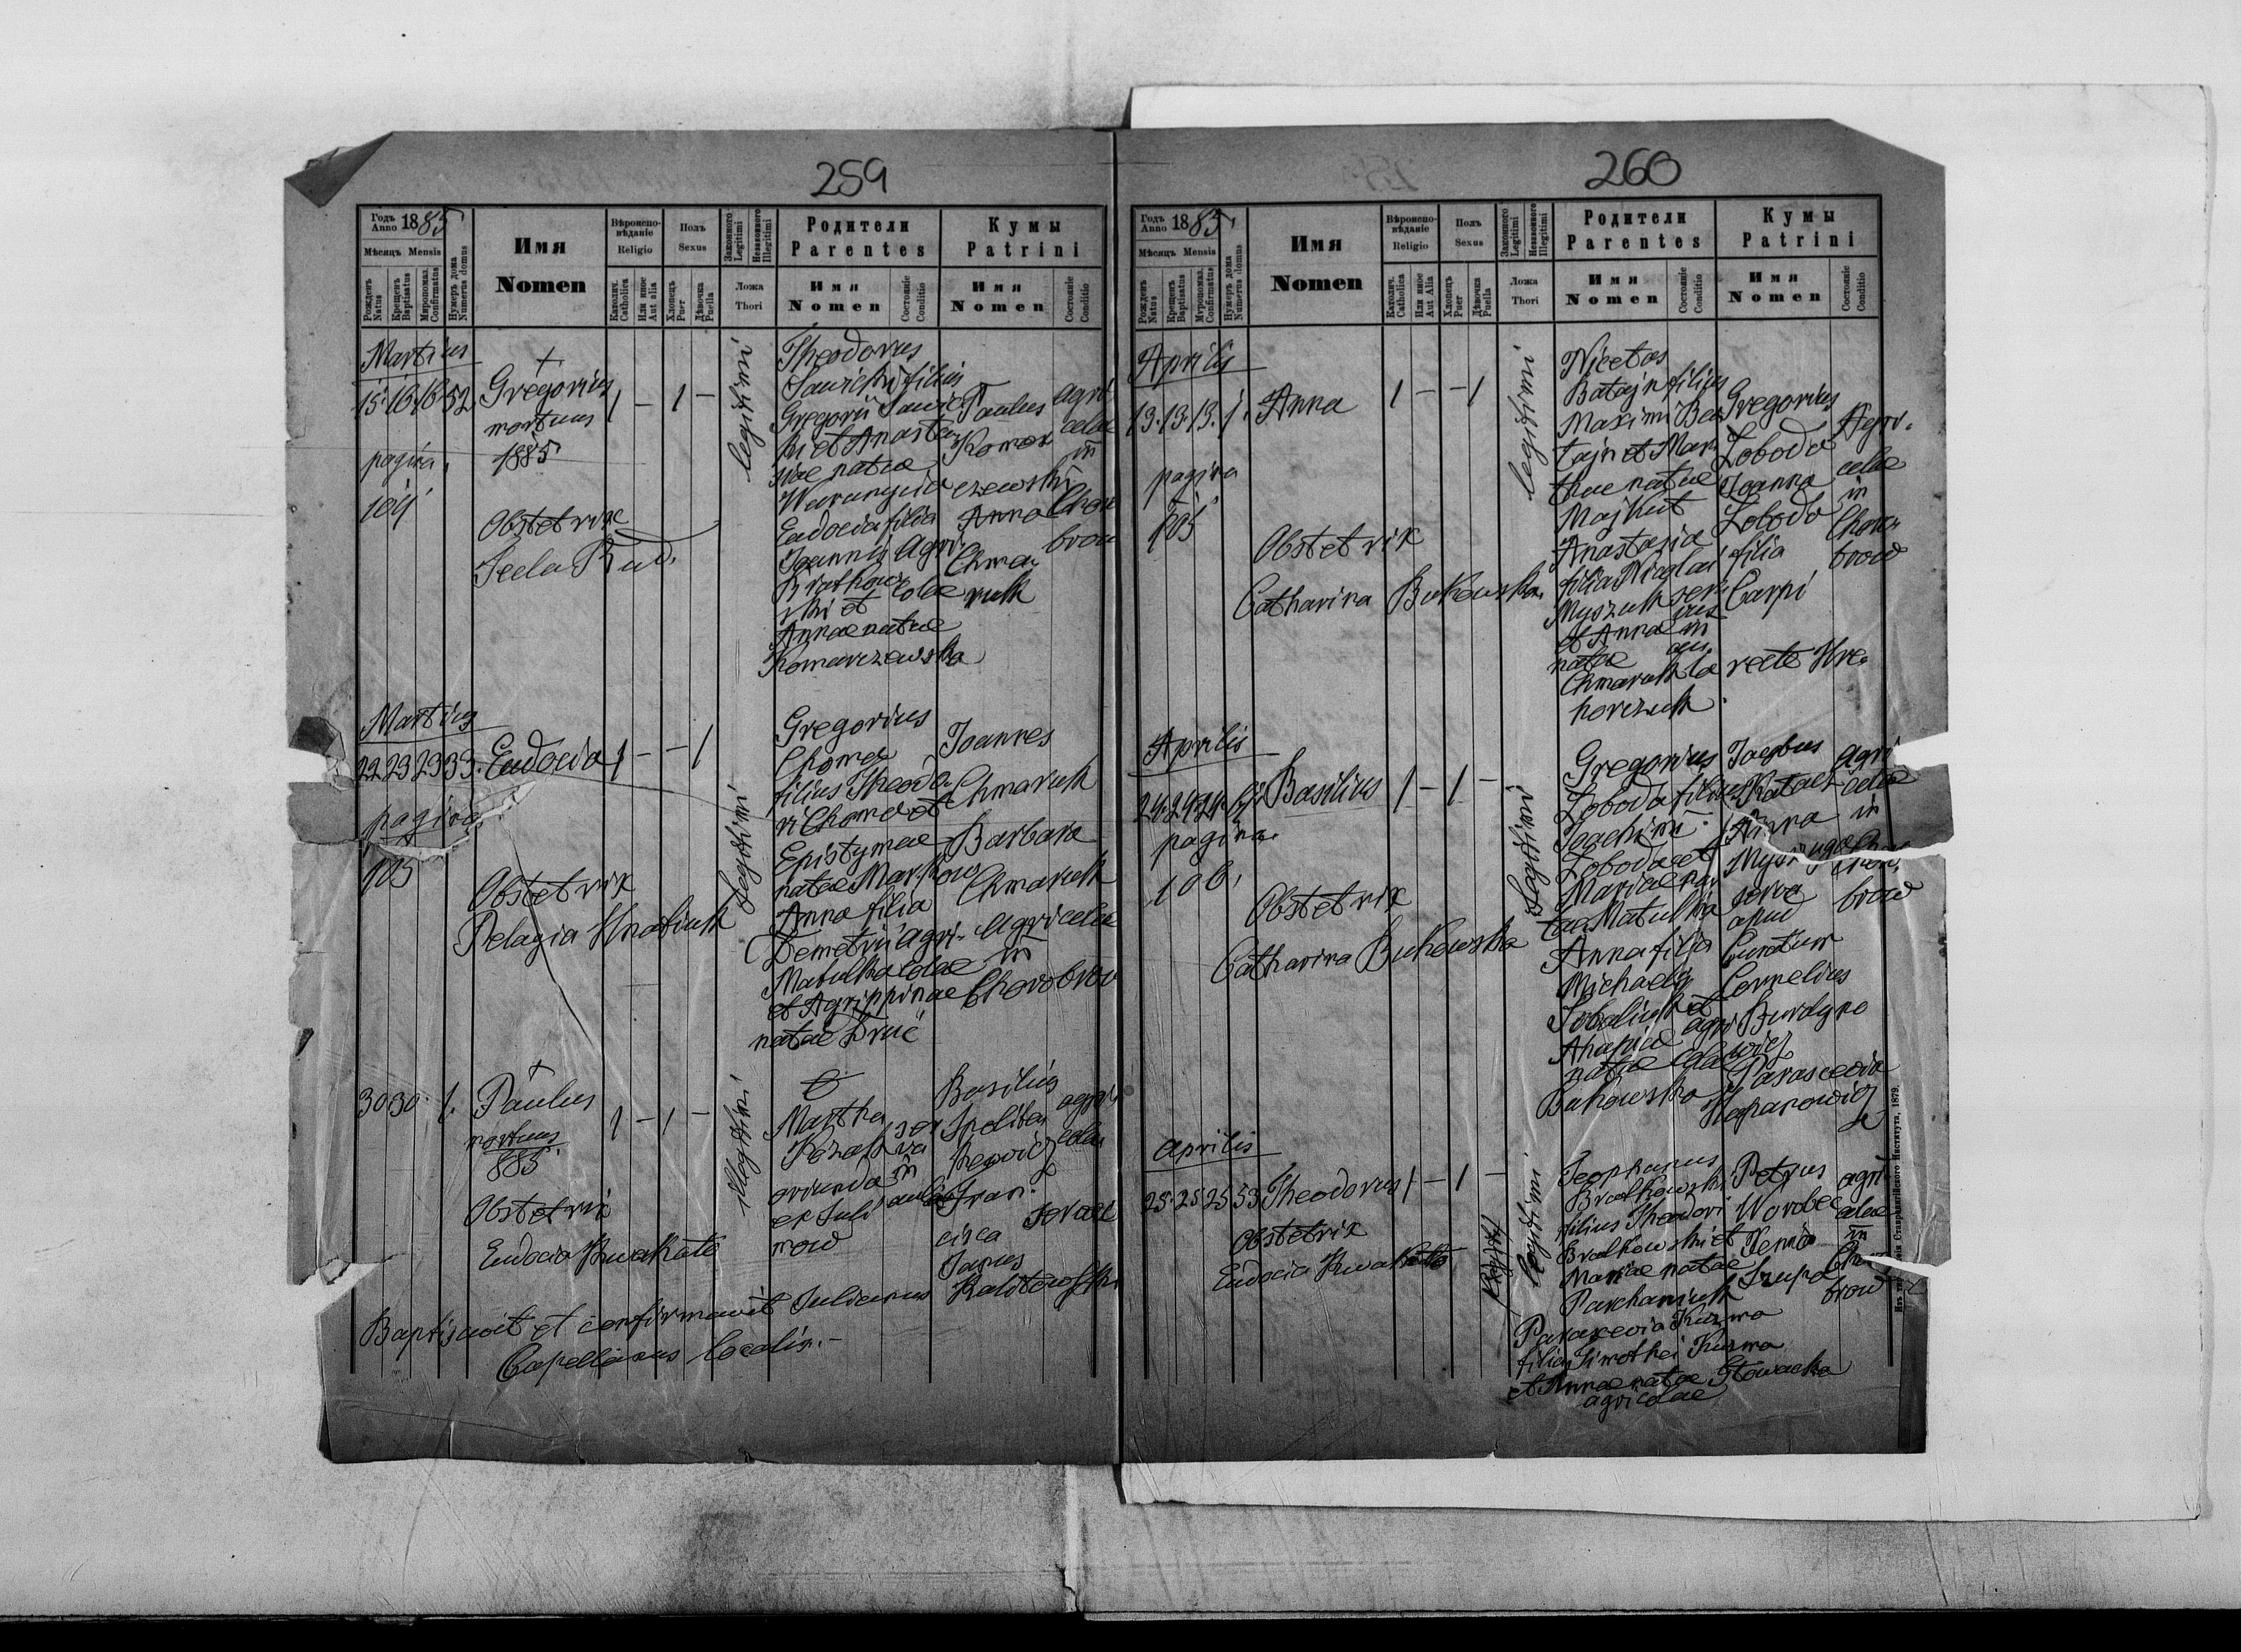 259
Годъ Anno 1885
Мѣсяцъ Mensis
Рожденъ Natus
Крещенъ Baptisatus
Миропомаз. Confirmatus
Нумеръ дома Numerus domus
Имя
Nomen
Вѣроиспо-
вѣданіе
Religio
Католич. Catholica
Или иное Aut alia
Полъ
Sexus
Хлопецъ Puer
Дѣвочка Puella
Законного Legitimi
Незаконного Illegitimi
Ложа
Thori
Родители
Parentes
Имя
Nomen
Состояніе Conditio
Кумы
Patrini
Имя
Nomen
Состояніе Conditio
Martius
15. 16. 16. 52
Gregorius
mortuus
1885
pagina
104
Obstetrix
Tecla Rud.
1 – 1 –
legitimi
Theodorus
Sawicki filius
Gregorii Sawic
ki et Anasta
siae natae
Eudocia filia
Joannis Agri
Bratkow colae
ski et
Annae natae
Komarzewska
Paulus
Komar
czewski
Anna
Chma
ruk
agri
colae
in
Choro
brow
Martius
22 23 23 33.
Eudocia
1 – – 1
pagina
105
Obstetrix
Pelagia Hnatiuk
Legitimi
Gregorius
Choma
filius Theodo
ri Choma et
Epistymae
natae Markow
Anna filia
Demetrii Agri-
Matulka colae
et Agrippinae
natae Druć
Joannes
Chmaruk
Barbara
Chmaruk
Agricolae
in
Chorobrow
30 30 1.
Paulus
mortuus
885
1 – 1 –
Obstetrix
Eudocia Kwakato
illegitimi
Martha
Kozak ser
va
oriunda in
ex Juli aula
mow
Basilius
Spolita
kewicz
Fran.
cisca
Janus
agri
colae
servae
Baptisavit et confirmavit Julianus
Capellanus localis.–
260
Годъ Anno 1885
Мѣсяцъ Mensis
Рожденъ Natus
Крещенъ Baptisatus
Миропомаз. Confirmatus
Нумеръ дома Numerus domus
Имя
Nomen
Вѣроиспо-
вѣданіе
Religio
Католич. Catholica
Или иное Aut Alia
Полъ
Sexus
Хлопецъ Puer
Дѣвочка Puella
Законного Legitimi
Незаконного Illegitimi
Ложа
Thori
Родители
Parentes
Имя
Nomen
Состояніе Conditio
Кумы
Patrini
Имя
Nomen
Состояніе Conditio
Aprilis
13. 13. 13. 1.
Anna
1 – – 1
pagina
105
Obstetrix
Catharina Bukowska
legitimi
Nicetas
Batajn filius
Maximi Ba
tajn et Mar
thae natae
Majkut
Anastasia
filia Nicolai
Myszuk ser
et Annae in
natae au
Chmaruk la recte Hre
horczuk
Gregorius
Łoboda
Joanna
Łoboda
filia
Carpi
Agri.
colae
in
Choro
brow
Aprilis
24. 24 24.
Basilius
1 – 1 –
pagina
106.
Obstetrix
Catharina Bukowska
Legitimi
Gregorius
Łoboda filius
Joachimi
Łoboda et
Mariae na
tae Matulka
Anna filia
Michaelis
Sobaliuk et
agri
natae colae
Bukowska
Jacobus
Anna
serva
apud
Cornelius
Burdyno
wicz
Parascevia
agri
colae
in
brow
Aprilis
25. 25 25 53
Theodorus
1 – 1 –
Obstetrix
Eudocia Kwakato
legitimi
Teophanus
Bratkowski
filius Theodori
Bratkowski et
Mariae natae
Parchaniuk
Parascevia Kuzma
filia Timothei Kuzma
et Annae natae Słowacka
agricolae
Petrus
Worobec
Xenia
agri
colae
in
Cho
brow
Ставропигійского Института, 1879.